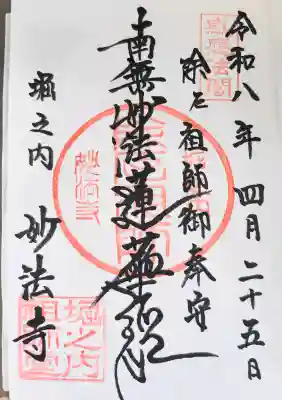 令和八年 四月二十五日
除厄 祖師御奉守
南無妙法蓮華経
堀之内 妙法寺
堀之内